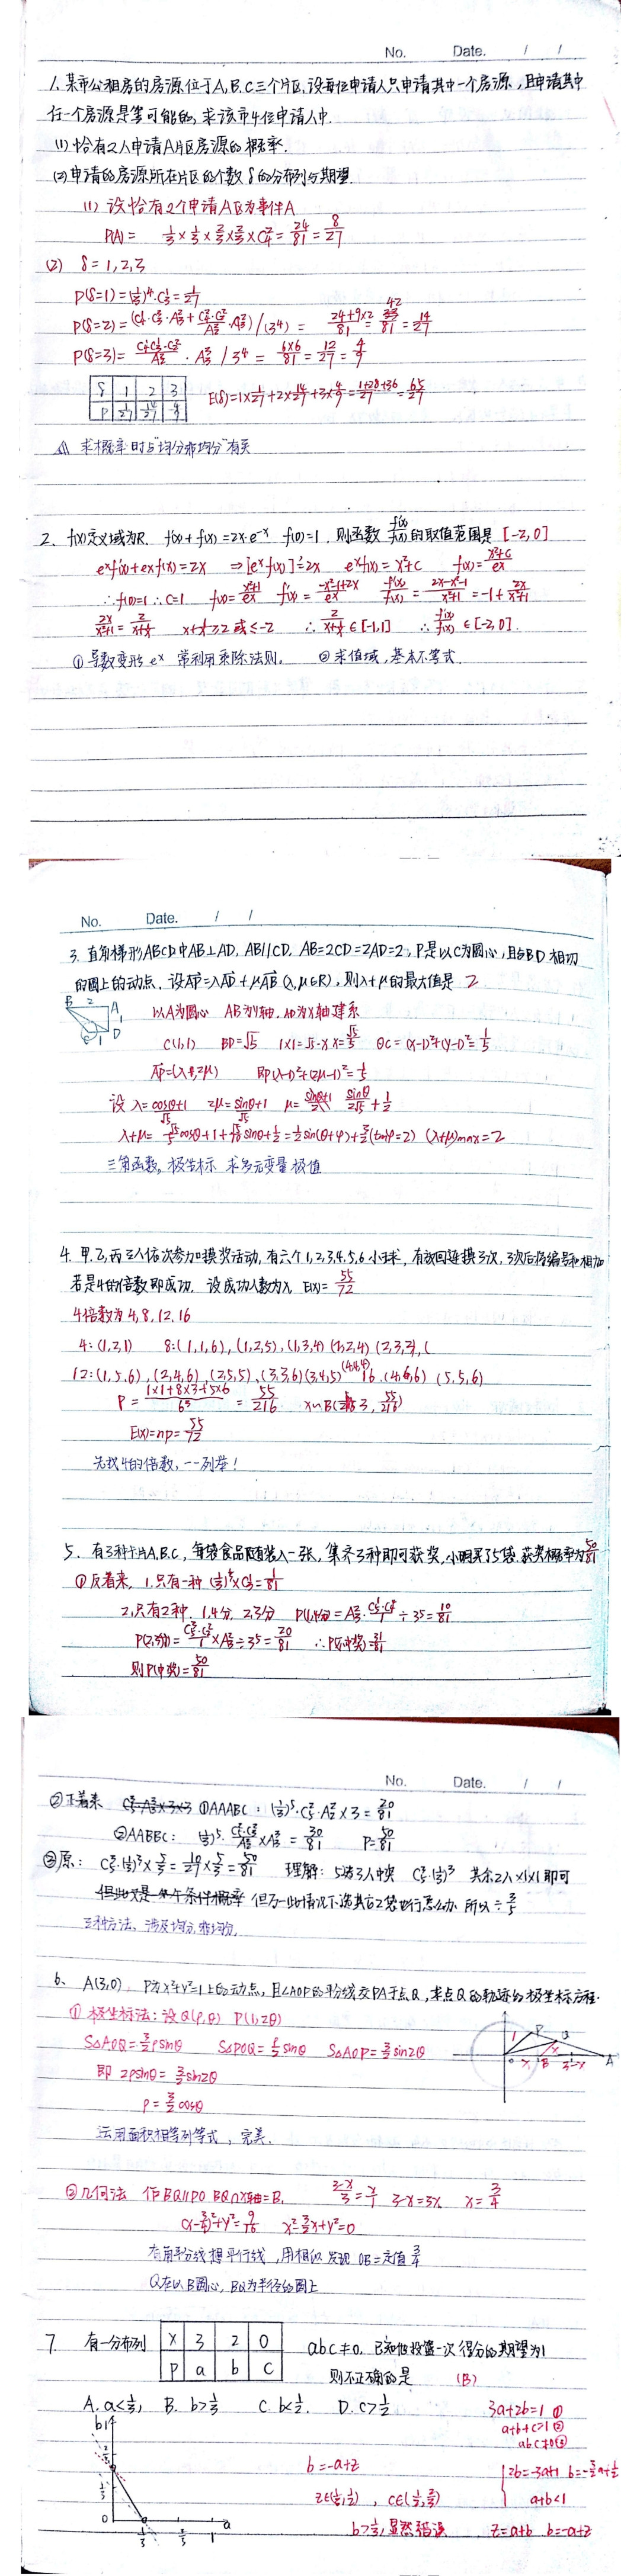 No.    Date.    /    /
1. 某市公租房的房源位于A,B,C三个片区,设每位申请人只申请其中一个房源,且申请其中
任一个房源是等可能的,求该市4位申请人中.
(1) 恰有2人申请A片区房源的概率.
(2) 申请的房源所在片区的个数 δ 的分布列与期望.
(1) 设恰有2个申请A区为事件A
P(A) = 1/3 × 1/3 × 2/3 × 2/3 × C²₄ = 24/81 = 8/27
(2) δ = 1, 2, 3
P(δ=1) = (1/3)⁴·C¹₃ = 1/27
24+9×2/81 = 42/81 = 14/27
6×6/81 = 12/27 = 4/9
δ 1 2 3
P 1/27 14/27 4/9
E(δ) = 1×1/27 + 2×14/27 + 3×4/9 = 1+28+36/27 = 65/27
求概率时与"均分非均分"有关
2. f(x)定义域为R. f'(x)+f(x)=2x·e⁻ˣ f(0)=1. 则函数 f'(x)/f(x) 的取值范围是 [-2,0]
eˣf'(x)+eˣf(x)=2x ⇒ [eˣf(x)]'=2x eˣf(x)=x²+c f(x)=x²+c/eˣ
∴ f(0)=1 ∴ C=1 f(x)=x²+1/eˣ f'(x)=-x²-1+2x/eˣ f'(x)/f(x)=2x-x²-1/x²+1 = -1+2x/x²+1
2x/x²+1 = 2/x+1/x x+1/x≥2 或≤-2 ∴ 2/x+1/x ∈[-1,1] ∴ f'(x)/f(x) ∈[-2,0].
① 导数变形 eˣ 常利用乘除法则. ② 求值域,基本不等式.
No.    Date.    /    /
3. 直角梯形ABCD中AB⊥AD, AB∥CD, AB=2CD=2AD=2, P是以C为圆心,且与BD相切
的圆上的动点. 设AP=λAD+μAB (λ,μ∈R), 则λ+μ的最大值是 2
B 2 A
1
C 1 D
以A为圆心 AB为y轴. AD为x轴建系
C(1,1) BD=√5
(x-1)²+(y-1)²=1/5
AP=(λ,2μ) 即(λ-1)²+(2μ-1)²=1/5
设 λ=cosθ/√5+1 2μ=sinθ/√5+1 sinθ/2√5+1/2
(tanφ=2) (λ+μ)max=2
三角函数, 极坐标 求多元变量极值
4. 甲,乙,丙三人依次参加摸奖活动,有六个1,2,3,4,5,6小球,有放回连摸3次,3次后将编号和相加
若是4的倍数即成功. 设成功人数为X, E(X)= 55/72
4倍数为4, 8, 12, 16
4: (1,2,1) 8: (1,1,6), (1,2,5), (1,3,4) (2,2,4) (2,3,3), (
12: (1,5,6), (2,4,6), (2,5,5), (3,3,6) (3,4,5) (4,4,4) 16. (4,6,6) (5,5,6)
P = 1×1+8×3+5×6/6³ = 55/216 X~B(3, 55/216)
E(X)=np=55/72
先找4的倍数, 一一列举!
5. 有3种卡片A,B,C, 每袋食品随装入一张, 集齐3种即可获奖,小明买了5袋.获奖概率为50/81
① 反着来. 1.只有一种 (1/3)⁵×C¹₃=1/81
2.只有2种. 1,4分, 2,3分 ÷3⁵=10/81
÷3⁵=20/81
则P(中奖)=50/81
No.    Date.    /    /
②正着来 ①AAABC: (1/3)⁵·C³₅·A²₂×3=20/81
②AABBC: =30/81 P=50/81
③原: C³₅·(1/3)³×5/3=10/27×5/3=50/81 理解: 5袋3人中奖 C³₅·(1/3)³ 其余2人×1×1即可
三种方法, 涉及均分,非均分.
6. A(3,0), P为x²+y²=1上的动点, 且∠AOP的平分线交PA于点Q, 求点Q的轨迹的极坐标方程.
① 极坐标法: 设Q(ρ,θ) P(1,2θ)
S△AOQ=3/2ρsinθ S△POQ=ρ/2sinθ S△AOP=3/2sin2θ
即 2ρsinθ=3/2sin2θ
ρ=3/2cosθ
运用面积相等列等式, 完美.
1 P Q x
O x B 3-x A
②几何法 作BQ∥PO BQ∩x轴=B. 3-x/3=x/1 3-x=3x x=3/4
(x-3/4)²+y²=9/16 x²-3/2x+y²=0
有角平分线想平行线,用相似发现 OB=定值3/4
Q在以B圆心, BQ为半径的圆上
7. 有一分布列 X 3 2 0
P a b c
abc≠0. 已知他投篮一次得分的期望为1
则不正确的是 (B)
A. a<1/3, B. b>1/3 C. b<1/2. D. c>1/2
3a+2b=1 ①
a+b+c=1 ②
abc≠0 ③
b
0 1/3 2/3 1 a
b=-a+z
z∈(1/3,1/2), c∈(1/2,2/3)
b>1/3, 显然错误
2b=-3a+1 b=-3/2a+1/2
a+b<1
z=a+b b=-a+z